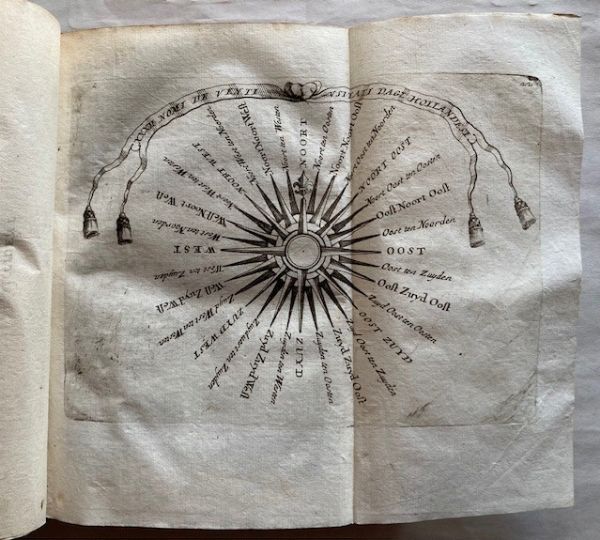 NOMI DE VENTI
VSITATI DAGL HOLLANDESI
NOORT
Noort ten Oosten
Noort Noort Oost
ten Noorden
NOORT OOST
Noort Oost ten Oosten
Oost Noort Oost
Oost ten Noorden
OOST
Oost ten Zuyden
Oost Zuyd Oost
Zuyd Oost ten Oosten
OOST ZUYD
Oost ten Zuyden
Zuyd Zuyd Oost
Zuyden ten Oosten
ZUYD
Zuyden ten Westen
Zuyd Zuyd West
ten Zuyden
ZUYD WEST
Zuyd West ten Westen
West Zuyd West
West ten Zuyden
WEST
West ten Noorden
West Noort West
Noort West ten Westen
NOORT WEST
Noort West ten Noorden
Noort Noort West
Noort ten Westen